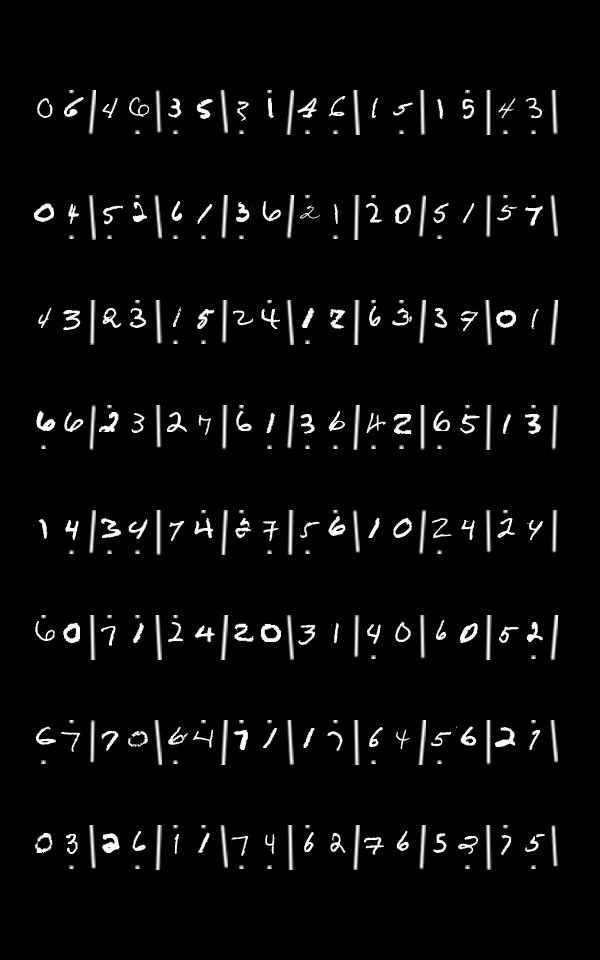 0 6 | 4 6 | 3 5 | 3 1 | 4 6 | 1 5 | 1 5 | 4 3 |
0 4 | 5 2 | 6 1 | 3 6 | 2 1 | 2 0 | 5 1 | 5 7 |
4 3 | 2 3 | 1 5 | 2 4 | 1 2 | 6 3 | 3 7 | 0 1 |
6 6 | 2 3 | 2 7 | 6 1 | 3 6 | 4 2 | 6 5 | 1 3 |
1 4 | 3 4 | 7 4 | 2 7 | 5 6 | 1 0 | 2 4 | 2 4 |
6 0 | 7 1 | 2 4 | 2 0 | 3 1 | 4 0 | 6 0 | 5 2 |
6 7 | 7 0 | 6 4 | 7 1 | 1 7 | 6 4 | 5 6 | 2 7 |
0 3 | 2 6 | 1 1 | 7 4 | 6 2 | 7 6 | 5 2 | 7 5 |